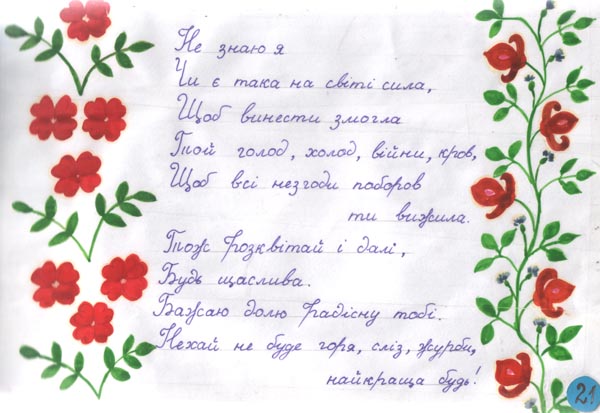 Не знаю я
Чи є така на світі сила,
Щоб винести змогла
Той голод, холод, війни, кров,
Щоб всі незгоди поборов
ти вижила.
Тож розквітай і далі,
Будь щаслива.
Бажаю долю радісну тобі.
Нехай не буде горя, сліз, журби,
найкраща будь!
21